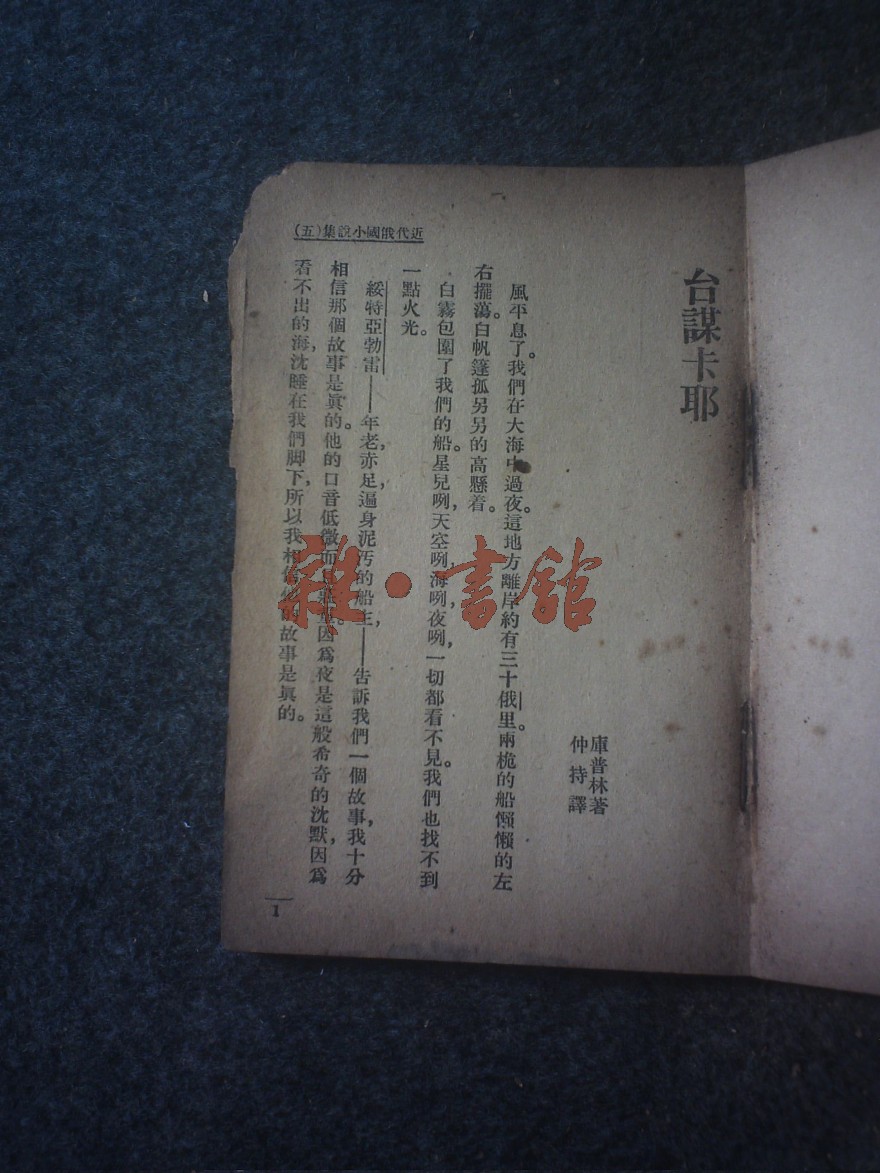 近代俄國小說集(五)
台謀卡耶
庫普林著
仲持譯
風平息了。我們在大海中過夜。這地方離岸約有三十俄里。兩桅的船懶懶的左
右擺蕩。白帆篷孤另另的高懸着。
白霧包圍了我們的船。星兒咧,天空咧,海咧,夜咧,一切都看不見。我們也找不到
一點火光。
綏特亞勃雷——年老,赤足,遍身泥污的船主,——告訴我們一個故事,我十分
相信那個故事是眞的。他的口音低微而因爲夜是這般希奇的沈默,因爲
看不出的海,沈睡在我們脚下,所以我相信他的故事是眞的。
1
雜·書舘